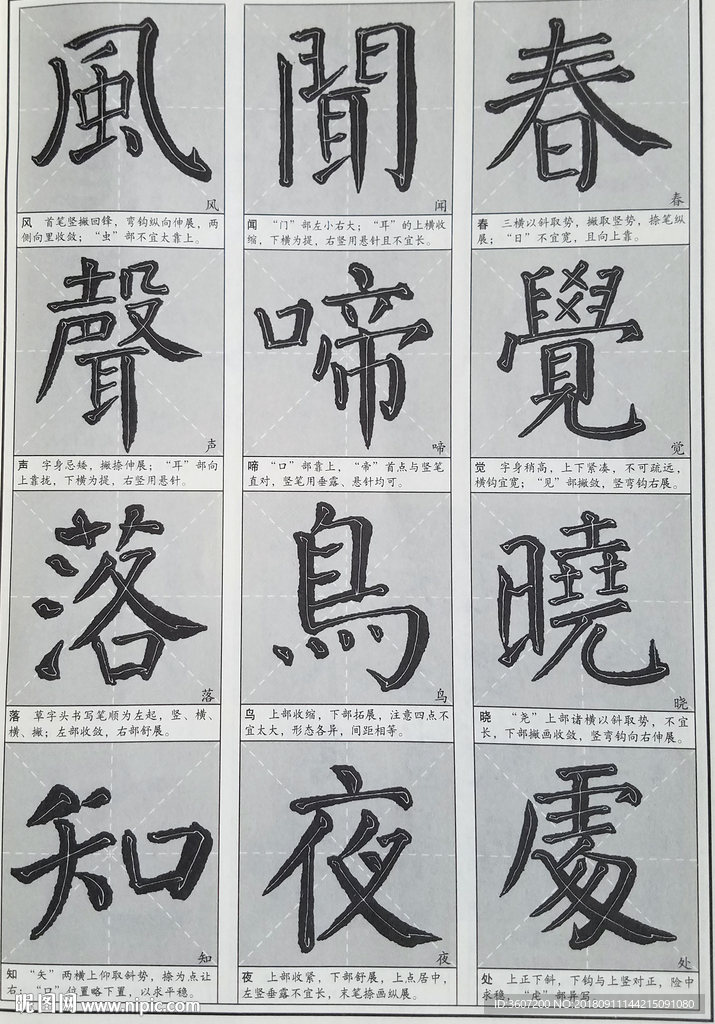 春
春
春 三横以斜取势，撇取竖势，捺笔纵
展；“日”不宜宽，且向上靠。
覺
觉
觉 字身稍高，上下紧凑，不可疏远，
横钩宜宽；“见”部撇敛，竖弯钩右展。
曉
晓
晓 “尧”上部诸横以斜取势，不宜
长，下部撇画收敛，竖弯钩向右伸展。
處
处
处 上正下斜，下钩与上竖对正，险中
求稳。“虍”部异写
聞
闻
闻 “门”部左小右大；“耳”的上横收
缩，下横为提，右竖用悬针且不宜长。
啼
啼
啼 “口”部靠上，“帝”首点与竖笔
直对，竖笔用垂露、悬针均可。
鳥
鸟
鸟 上部收缩，下部拓展，注意四点不
宜太大，形态各异，间距相等。
夜
夜
夜 上部收紧，下部舒展，上点居中，
左竖垂露不宜长，末笔捺画纵展。
風
风
风 首笔竖撇回锋，弯钩纵向伸展，两
侧向里收敛；“虫”部不宜太靠上。
聲
声
声 字身忌矮，撇捺伸展；“耳”部向
上靠拢，下横为提，右竖用悬针。
落
落
落 草字头书写笔顺为左起，竖、横、
横、撇；左部收敛，右部舒展。
知
知
知 “矢”两横上仰取斜势，捺为点让
右；“口”位置略下置，以求平稳。
昵图网 www.nipic.com
ID:3607200 NO:20180911144215091080